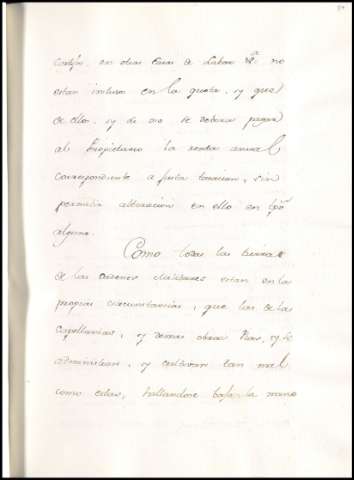 en otras Casas de Labor &ª. no
estan inclusa en la quota, y que
de ello, y de eso se debera pagar
al Propietario la renta anual
correspondiente a justa tasacion, sin
permitir alteracion en ello en tpõ
alguno.
Como todas las tierras
de las Ordenes Militares estan en las
propias circunstancias, que las de las
Capellanias, y demas obras Pias, y se
administran, y cultivan tan mal
como estas, hallandose bajo la mano